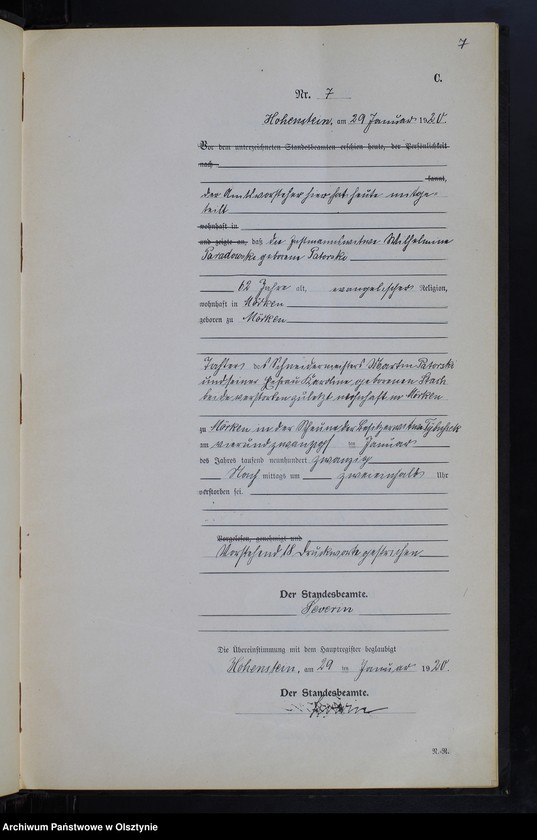 7
C.
Nr. 7
Hohenstein, am 29 Januar 1920.
Vor dem unterzeichneten Standesbeamten erschien heute, der Persönlichkeit
nach
kannt,
der Amtsvorsteher hier hat heute mitge
teilt
wohnhaft in
und zeigte an, daß die Wilhelmine
Paradowski geborene Patorski
62 Jahre alt, evangelischer Religion,
wohnhaft in Mörken
geboren zu Mörken
Tochter des Schneidermeisters Martin Patorski
und seiner Ehefrau Karoline geborenen
beide verstorben zuletzt wohnhaft in Mörken
zu Mörken in der Scheune der Besitzerwitwe
am vierundzwanzigsten im Januar
des Jahres tausend neunhundert zwanzig
Nach mittags um zweieinhalb Uhr
verstorben sei.
Vorgelesen, genehmigt und
Vorstehend 18 Druckworte gestrichen
Der Standesbeamte.
Severin
Die Übereinstimmung mit dem Hauptregister beglaubigt
Hohenstein, am 29 ten Januar 1920.
Der Standesbeamte.
Severin
N.-R.
Archiwum Państwowe w Olsztynie